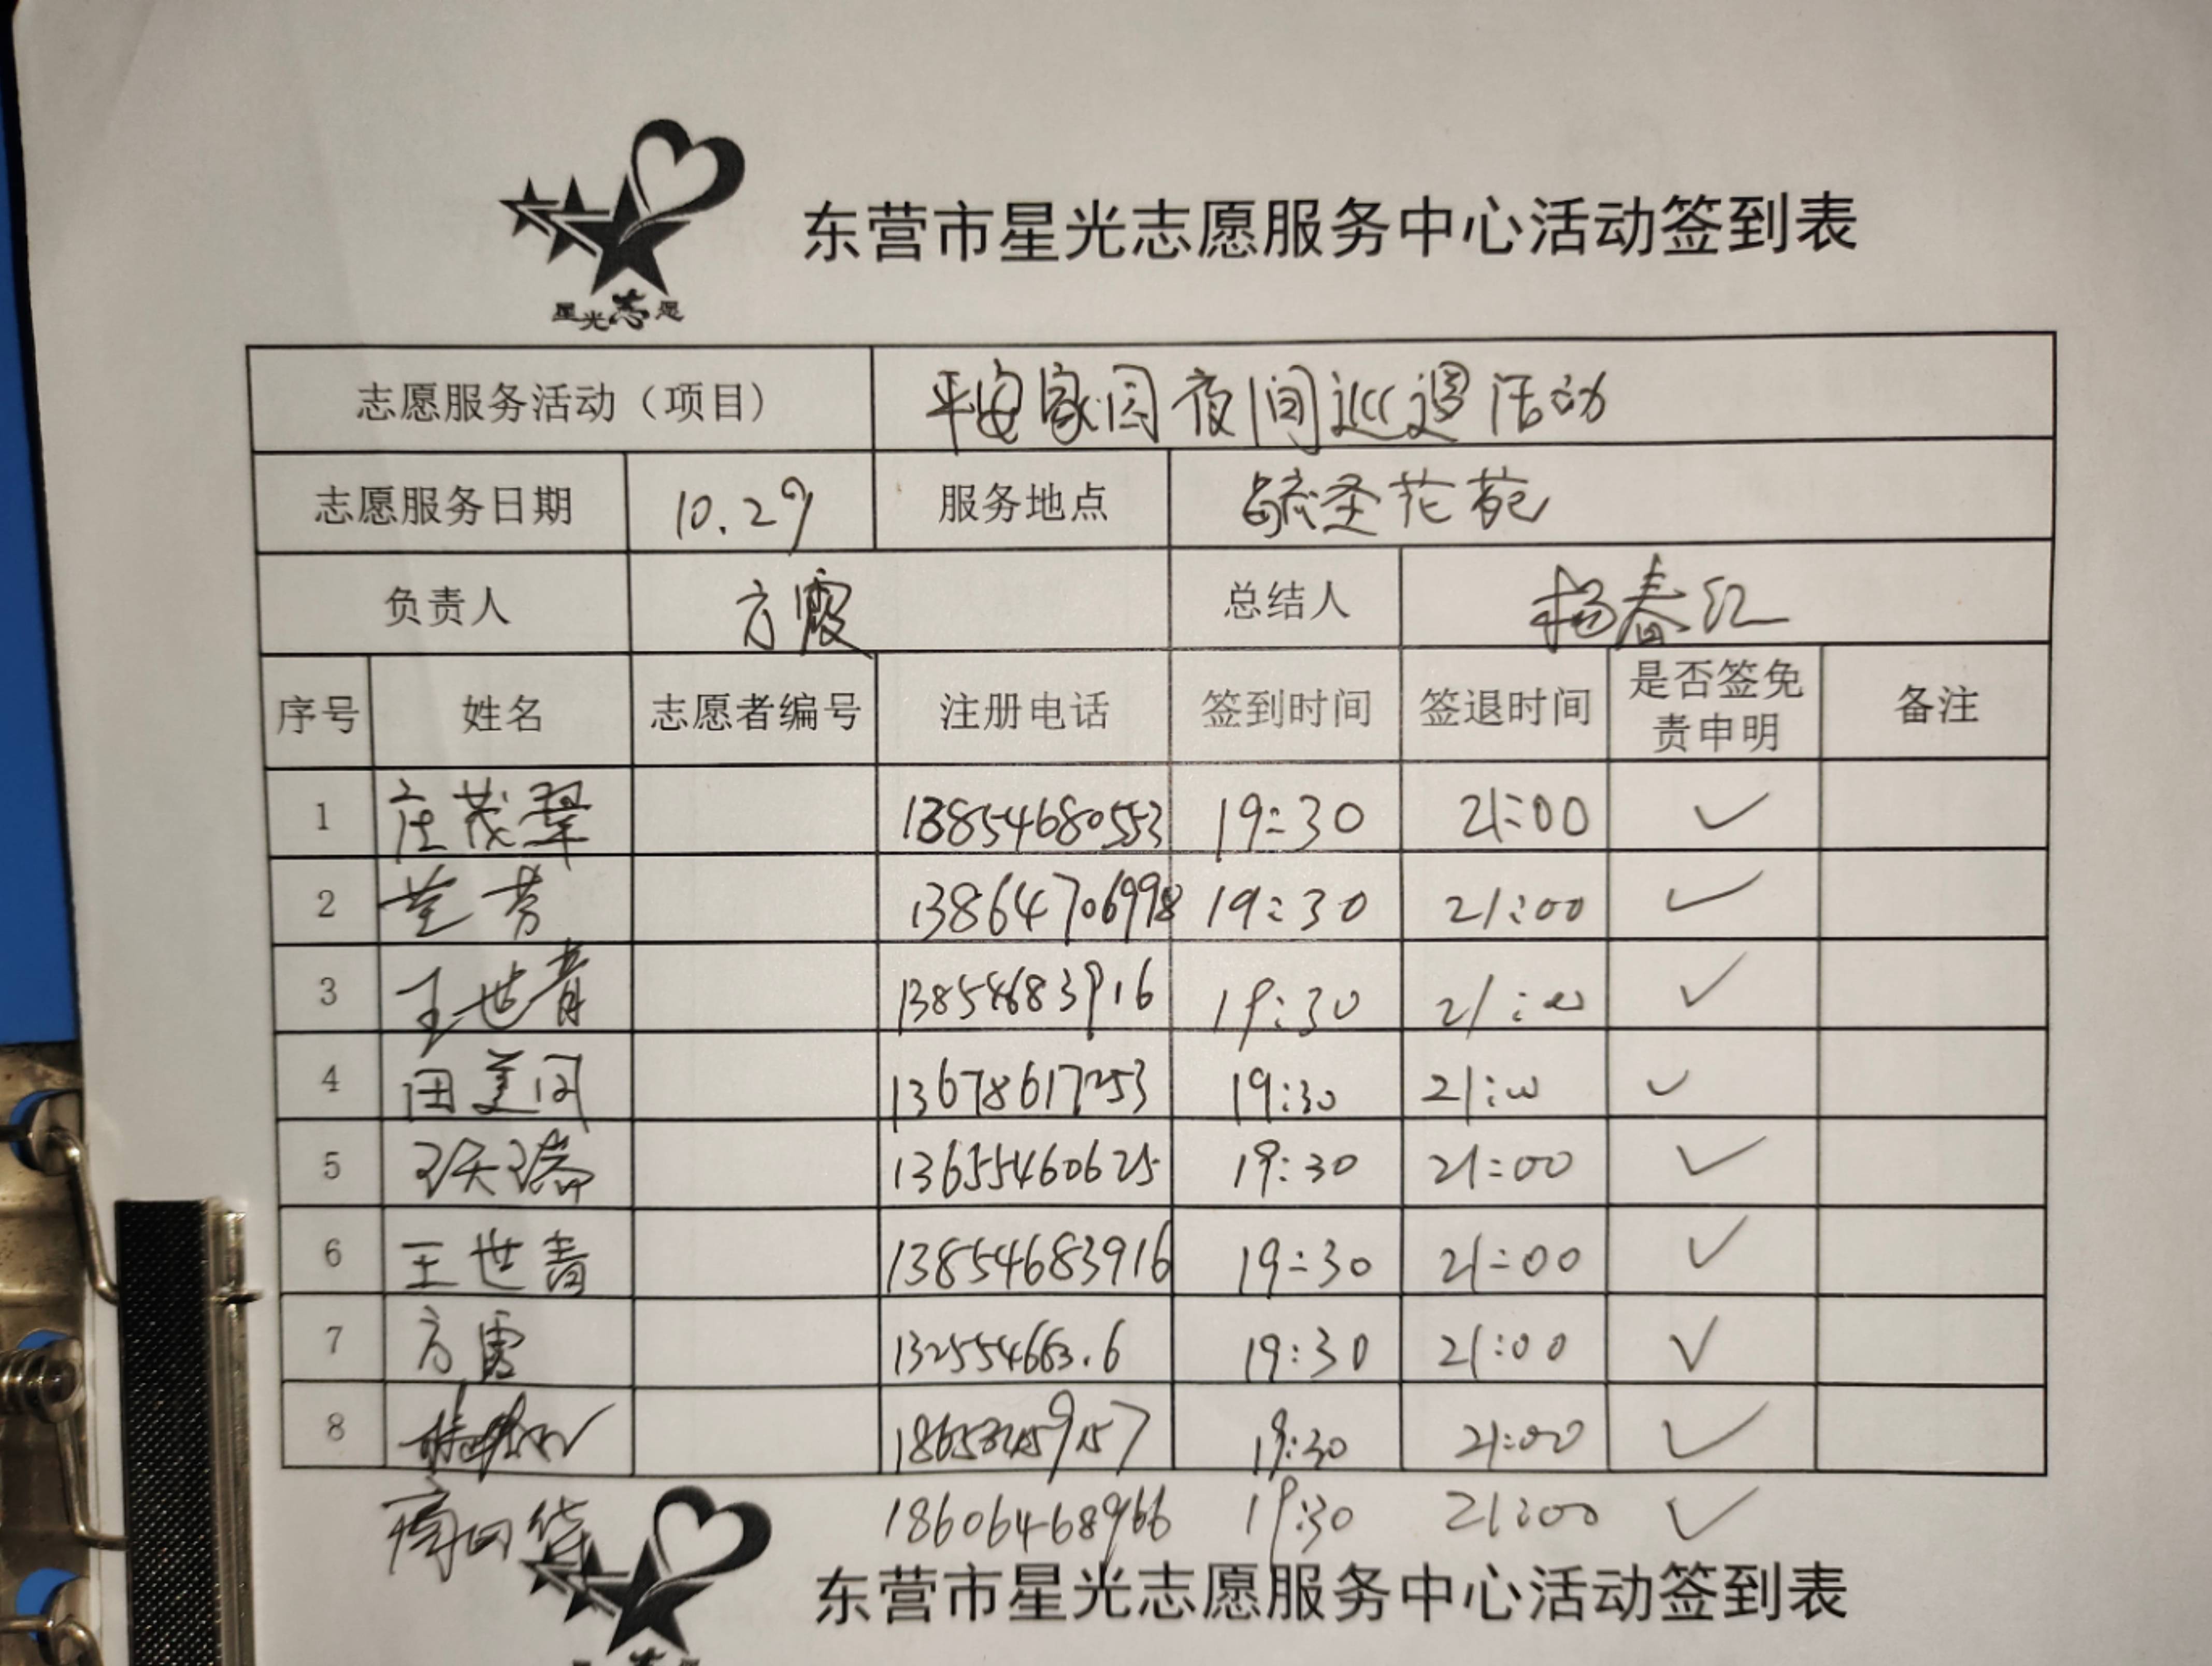 星光志愿
东营市星光志愿服务中心活动签到表
志愿服务活动（项目） 平安家园夜间巡逻活动
志愿服务日期 10.29 服务地点 毓圣花苑
负责人 方霞 总结人 杨春红
序号 姓名 志愿者编号 注册电话 签到时间 签退时间 是否签免责申明 备注
1 庄茂翠 13854680553 19:30 21:00 ✓
2 13864706998 19:30 21:00 ✓
3 王世青 13854683916 19:30 21:00 ✓
4 田美闵 13678617253 19:30 21:00 ✓
5 13655460625 19:30 21:00 ✓
6 王世青 13854683916 19:30 21:00 ✓
7 方霞 19:30 21:00 ✓
8 19:30 21:00 ✓
18606468966 19:30 21:00 ✓
东营市星光志愿服务中心活动签到表